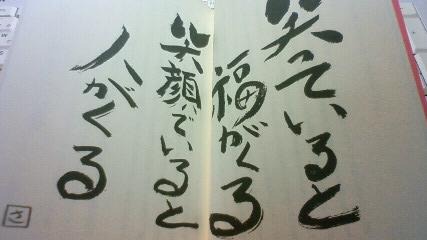 笑っていると
福がくる
笑顔でいると
人がくる
さ